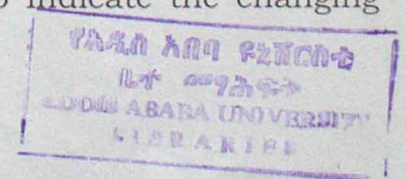 o indicate the changing
የአዲስ አበባ ዩኒቨርስቲ
ቤተ መፃሕፍት
ADDIS ABABA UNIVERSITY
LIBRARIES